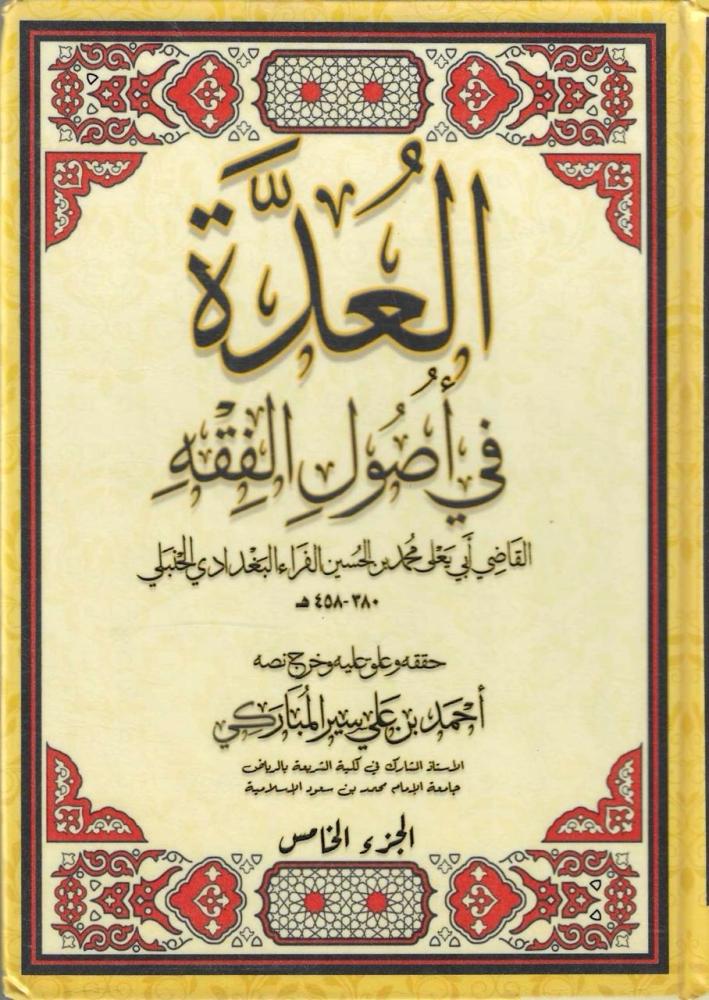 العُدَّة
في أُصُولِ الفِقْهِ
القاضي أبي يعلى محمد بن الحسين الفراء البغدادي الحنبلي
٣٨٠-٤٥٨ هـ
حققه وعلق عليه وخرج نصه
أحمد بن علي سير المُبَاركي
الأستاذ المشارك في كلية الشريعة بالرياض
جامعة الإمام محمد بن سعود الإسلامية
الجزء الخامس